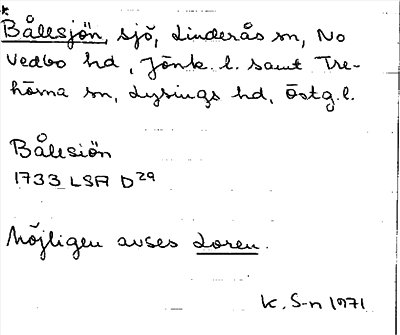 *
Bålesjön, sjö, Linderås sn, No
Vedbo hd, Jönk. l. samt Tre-
hörna sn, Lysings hd, Östg. l.
Bålesiön
1733 LSA D29
Möjligen avses Loren.
K. S-n 1971